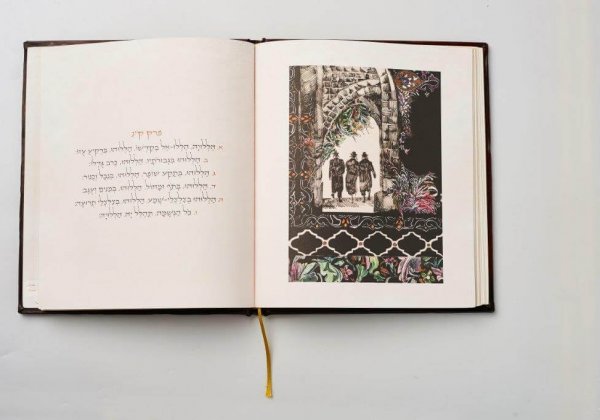 פרק ק״נ
א. הַלְלוּיָהּ, הַלְלוּ-אֵל בְּקָדְשׁוֹ; הַלְלוּהוּ, בִּרְקִיעַ עֻזּוֹ.
ב. הַלְלוּהוּ בִגְבוּרֹתָיו; הַלְלוּהוּ, כְּרֹב גֻּדְלוֹ.
ג. הַלְלוּהוּ, בְּתֵקַע שׁוֹפָר; הַלְלוּהוּ, בְּנֵבֶל וְכִנּוֹר.
ד. הַלְלוּהוּ, בְתֹף וּמָחוֹל; הַלְלוּהוּ, בְּמִנִּים וְעֻגָב.
ה. הַלְלוּהוּ בְצִלְצְלֵי-שָׁמַע; הַלְלוּהוּ, בְּצִלְצְלֵי תְרוּעָה.
ו. כֹּל הַנְּשָׁמָה, תְּהַלֵּל יָהּ: הַלְלוּיָהּ.